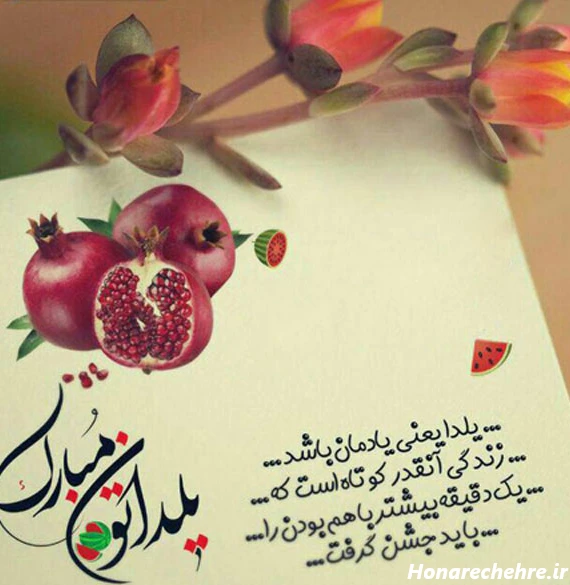 ... یلدا یعنی یادمان باشد ...
... زندگی آنقدر کوتاه است که ...
... یک دقیقه بیشتر با هم بودن را ...
... باید جشن گرفت ...
یلداتون مبارک
Honarechehre.ir